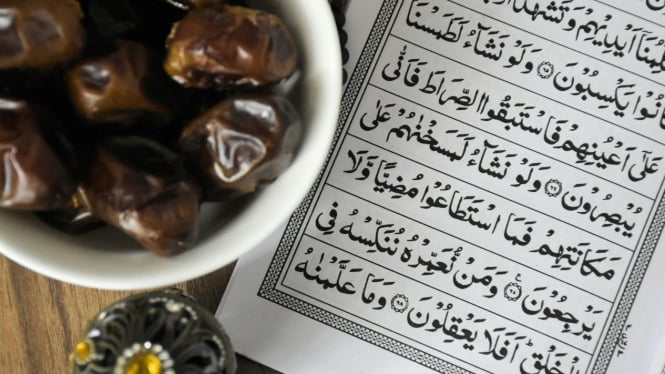 وَتُكَلِّمُنَا اَيْدِيْهِمْ وَتَشْهَدُ
كَانُوْا يَكْسِبُوْنَ ۝٦٥ وَلَوْ نَشَآءُ لَطَمَسْنَا
عَلٰٓى اَعْيُنِهِمْ فَاسْتَبَقُوا الصِّرَاطَ فَاَنّٰى
يُبْصِرُوْنَ ۝٦٦ وَلَوْ نَشَآءُ لَمَسَخْنٰهُمْ عَلٰى
مَكَانَتِهِمْ فَمَا اسْتَطَاعُوْا مُضِيًّا وَّلَا
يَرْجِعُوْنَ ۝٦٧ وَمَنْ نُّعَمِّرْهُ نُنَكِّسْهُ فِى
الْخَلْقِ ۗ اَفَلَا يَعْقِلُوْنَ ۝٦٨ وَمَا عَلَّمْنٰهُ